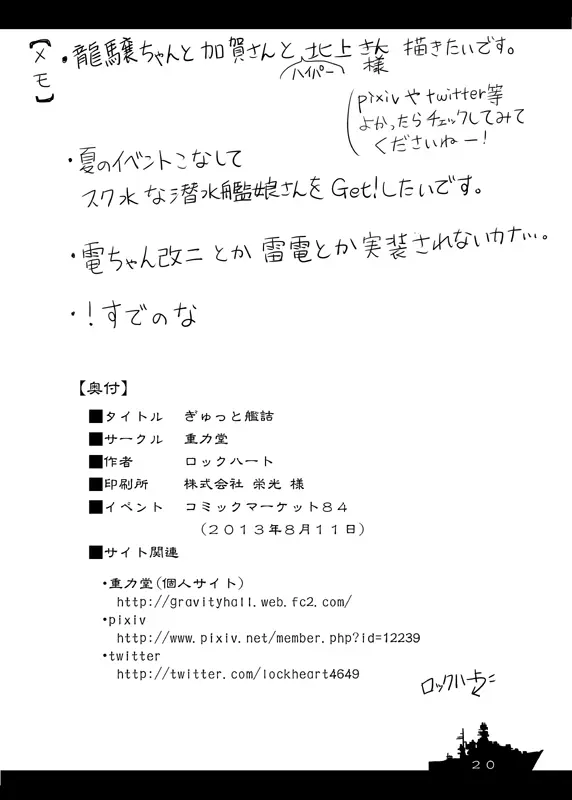 【メモ】
・龍驤ちゃんと加賀さんと北上さん 描きたいです。
ハイパー 様
pixivやtwitter等
よかったらチェックしてみて
くださいねー!
・夏のイベントこなして
スク水な潜水艦娘さんをGet!したいです。
・電ちゃん改二とか雷電とか実装されないカナ…。
・!すでのな
【奥付】
■タイトル ぎゅっと艦詰
■サークル 重力堂
■作者 ロックハート
■印刷所 株式会社 栄光 様
■イベント コミックマーケット84
(2013年8月11日)
■サイト関連
・重力堂(個人サイト)
http://gravityhall.web.fc2.com/
・pixiv
http://www.pixiv.net/member.php?id=12239
・twitter
http://twitter.com/lockheart4649
ロックハート
20